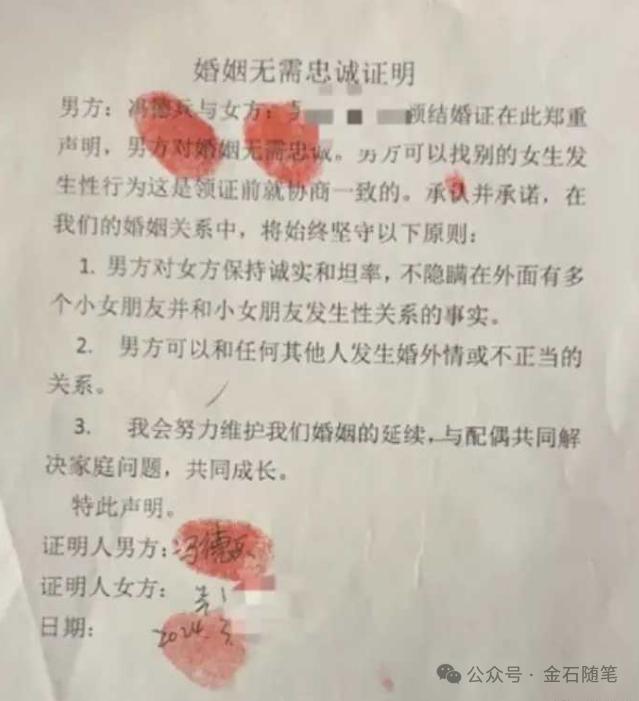 婚姻无需忠诚证明
男方：冯德兵与女方：领结婚证在此郑重
声明，男方对婚姻无需忠诚。男方可以找别的女生发
生性行为这是领证前就协商一致的。承认并承诺，在
我们的婚姻关系中，将始终坚守以下原则：
1. 男方对女方保持诚实和坦率，不隐瞒在外面有多
个小女朋友并和小女朋友发生性关系的事实。
2. 男方可以和任何其他人发生婚外情或不正当的
关系。
3. 我会努力维护我们婚姻的延续，与配偶共同解
决家庭问题，共同成长。
特此声明。
证明人男方：冯德兵
证明人女方：
日期：2024.
公众号 · 金石随笔